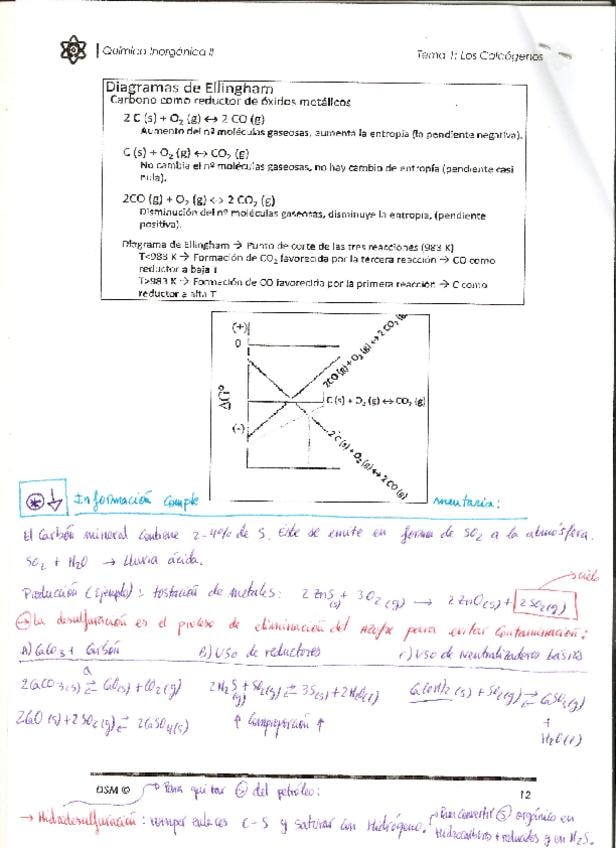 Química Inorgánica II
Tema 1: Los Calcógenos
Diagramas de Ellingham
Carbono como reductor de óxidos metálicos
2 C (s) + O₂ (g) ↔ 2 CO (g)
Aumento del nº moléculas gaseosas, aumenta la entropía (la pendiente negativa).
C (s) + O₂ (g) ↔ CO₂ (g)
No cambia el nº moléculas gaseosas, no hay cambio de entropía (pendiente casi
nula).
2CO (g) + O₂ (g) <-> 2 CO₂ (g)
Disminución del nº moléculas gaseosas, disminuye la entropía, (pendiente
positiva).
Diagrama de Ellingham → Punto de corte de las tres reacciones (983 K)
T<983 K → Formación de CO₂ favorecida por la tercera reacción → CO como
reductor a baja T
T>983 K → Formación de CO favorecida por la primera reacción → C como
reductor a alta T
(+)
0
ΔGº
(-)
2CO (g) + O₂ (g) ↔ 2 CO₂ (g)
C (s) + O₂ (g) ↔ CO₂ (g)
2 C (s) + O₂ (g) ↔ 2 CO (g)
Información complementaria:
El Carbón mineral contiene 2-4% de S. Este se emite en forma de SO₂ a la atmósfera.
SO₂ + H₂O → Lluvia ácida.
Producción (Ejemplo): tostación de metales: 2 ZnS (s) + 3O₂ (g) → 2 ZnO (s) + 2SO₂ (g)
→ La desulfuración es el proceso de eliminación del Azufre para evitar contaminación:
A) CaCO₃ + Carbón
B) Uso de reductores
C) Uso de neutralizadores básicos
2CaCO₃ (s) ⇄ CaO (s) + CO₂ (g)
2H₂S (g) + SO₂ (g) ⇄ 3S (s) + 2H₂O (l)
Ca(OH)₂ (s) + SO₂ (g) ⇄ CaSO₃ (g)
+
H₂O (l)
2CaO (s) + 2SO₂ (g) ⇄ 2CaSO₄ (s)
↑ Comproporción ↑
DSM ©
12
→ Para quitar S del petróleo:
→ Hidrodesulfuración: romper enlaces C-S y saturar con Hidrógeno.
Para convertir S orgánico en
hidrocarburos + reducidos y en H₂S.